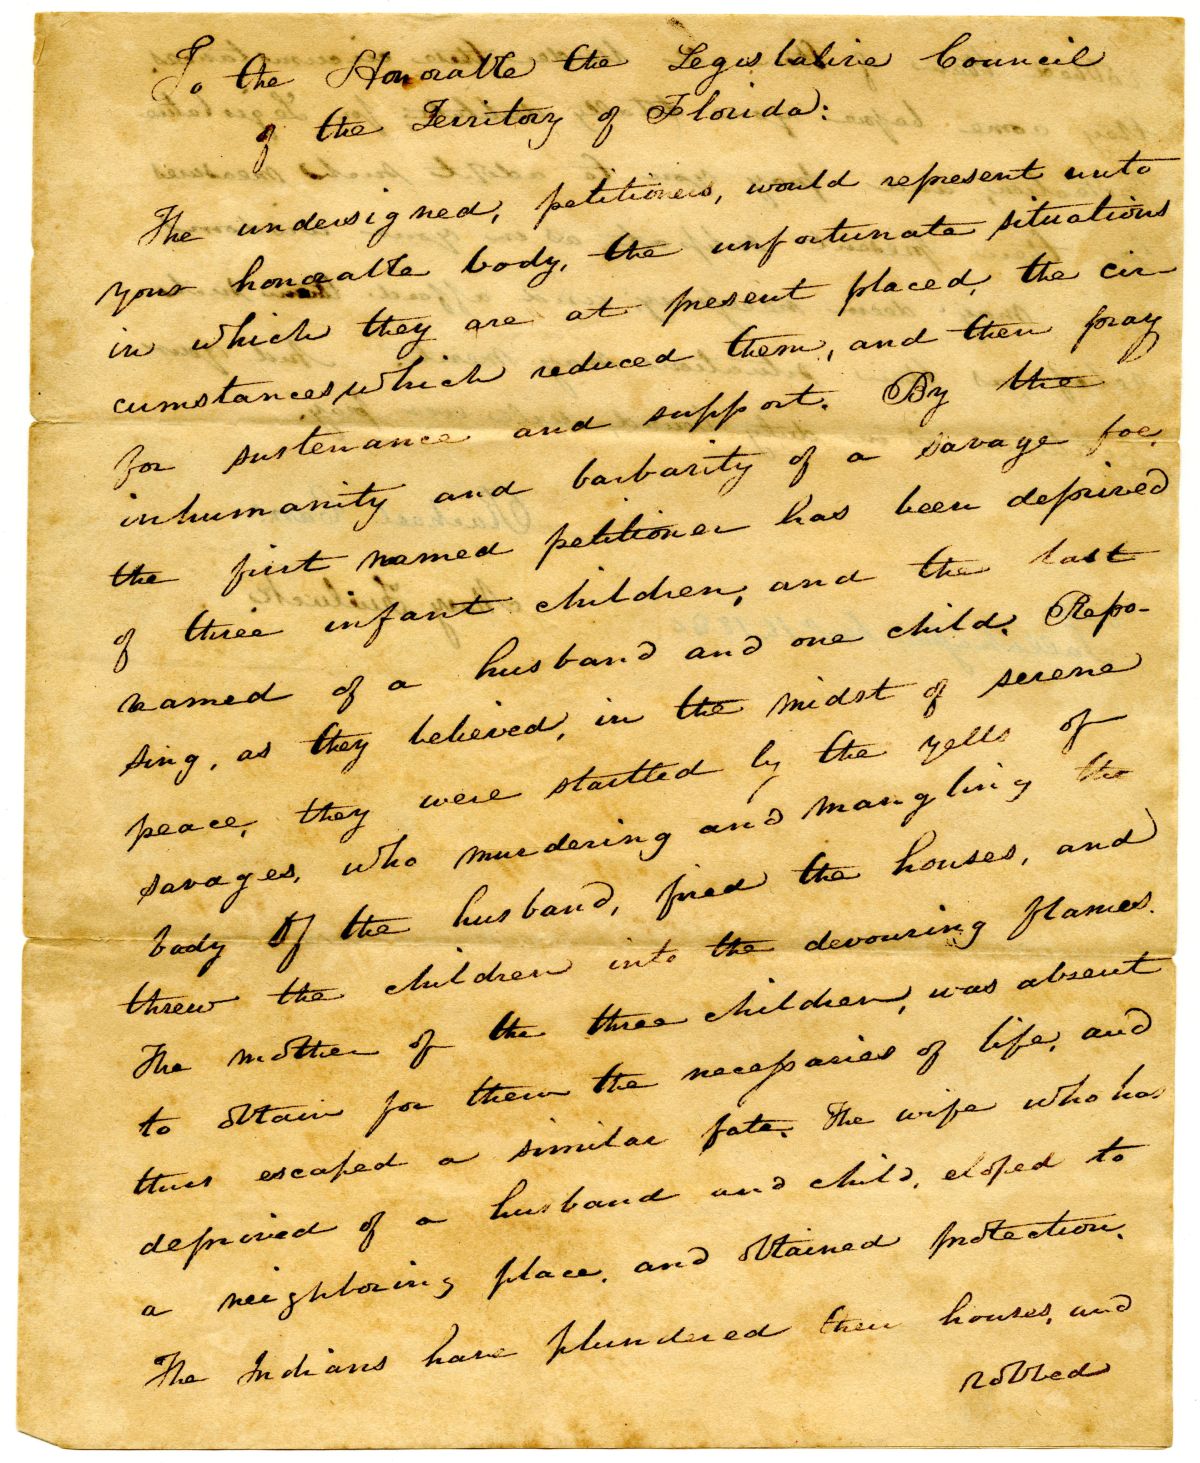 To the Honorable the Legislative Council
of the Territory of Florida:
The undersigned, petitioners, would represent unto
your honorable body, the unfortunate situations
in which they are at present placed, the cir-
cumstances which reduced them, and then pray
for sustenance and support. By the
inhumanity and barbarity of a savage foe,
the first named petitioner has been deprived
of three infant children, and the last
named of a husband and one child. Repo-
sing, as they believed, in the midst of serene
peace, they were startled by the yells of
savages, who murdering and mangling the
body of the husband, fired the houses, and
threw the children into the devouring flames.
The mother of the three children, was absent
to obtain for them the necessaries of life, and
thus escaped a similar fate. The wife who has
deprived of a husband and child, eloped to
a neighboring place, and obtained protection.
The Indians have plundered their houses, and
robbed